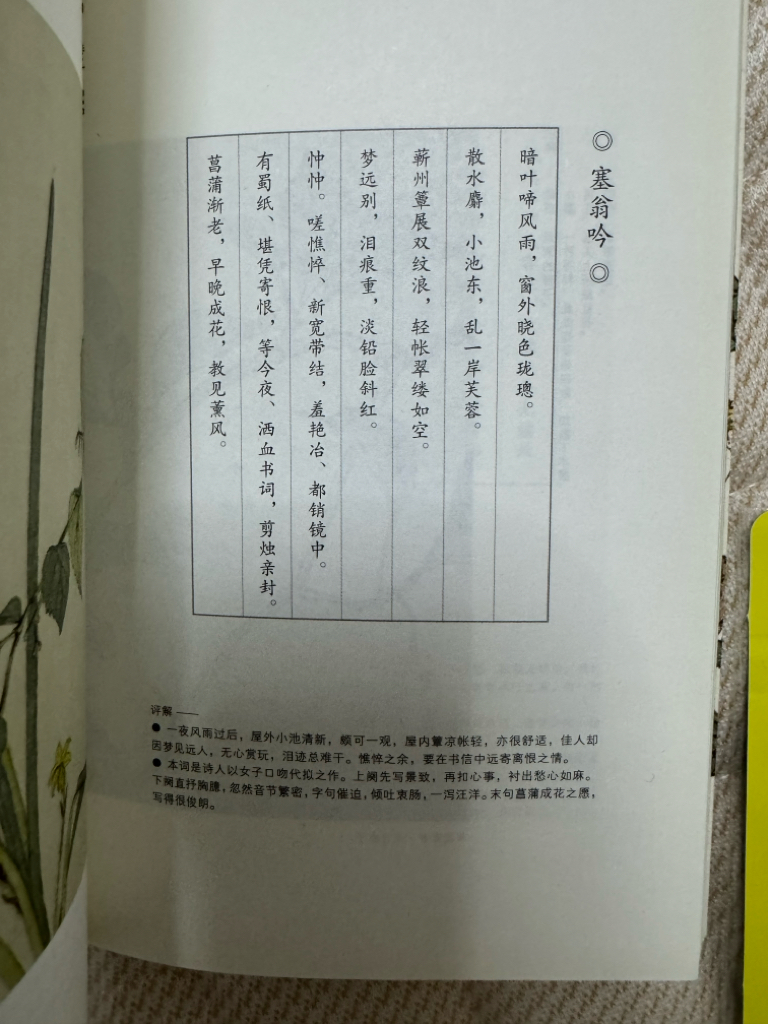 ◎ 塞翁吟 ◎
暗叶啼风雨，窗外晓色珑璁。
散水麝，小池东，乱一岸芙蓉。
蕲州簟展双纹浪，轻帐翠缕如空。
梦远别，泪痕重，淡铅脸斜红。
忡忡。嗟憔悴、新宽带结，羞艳冶、都销镜中。
有蜀纸、堪凭寄恨，等今夜、洒血书词，剪烛亲封。
菖蒲渐老，早晚成花，教见薰风。
评解——
● 一夜风雨过后，屋外小池清新，颇可一观，屋内簟凉帐轻，亦很舒适，佳人却
因梦见远人，无心赏玩，泪迹总难干。憔悴之余，要在书信中远寄离恨之情。
● 本词是诗人以女子口吻代拟之作。上阕先写景致，再扣心事，衬出愁心如麻。
下阕直抒胸臆，忽然音节繁密，字句催迫，倾吐衷肠，一泻汪洋。末句菖蒲成花之愿，
写得很俊朗。